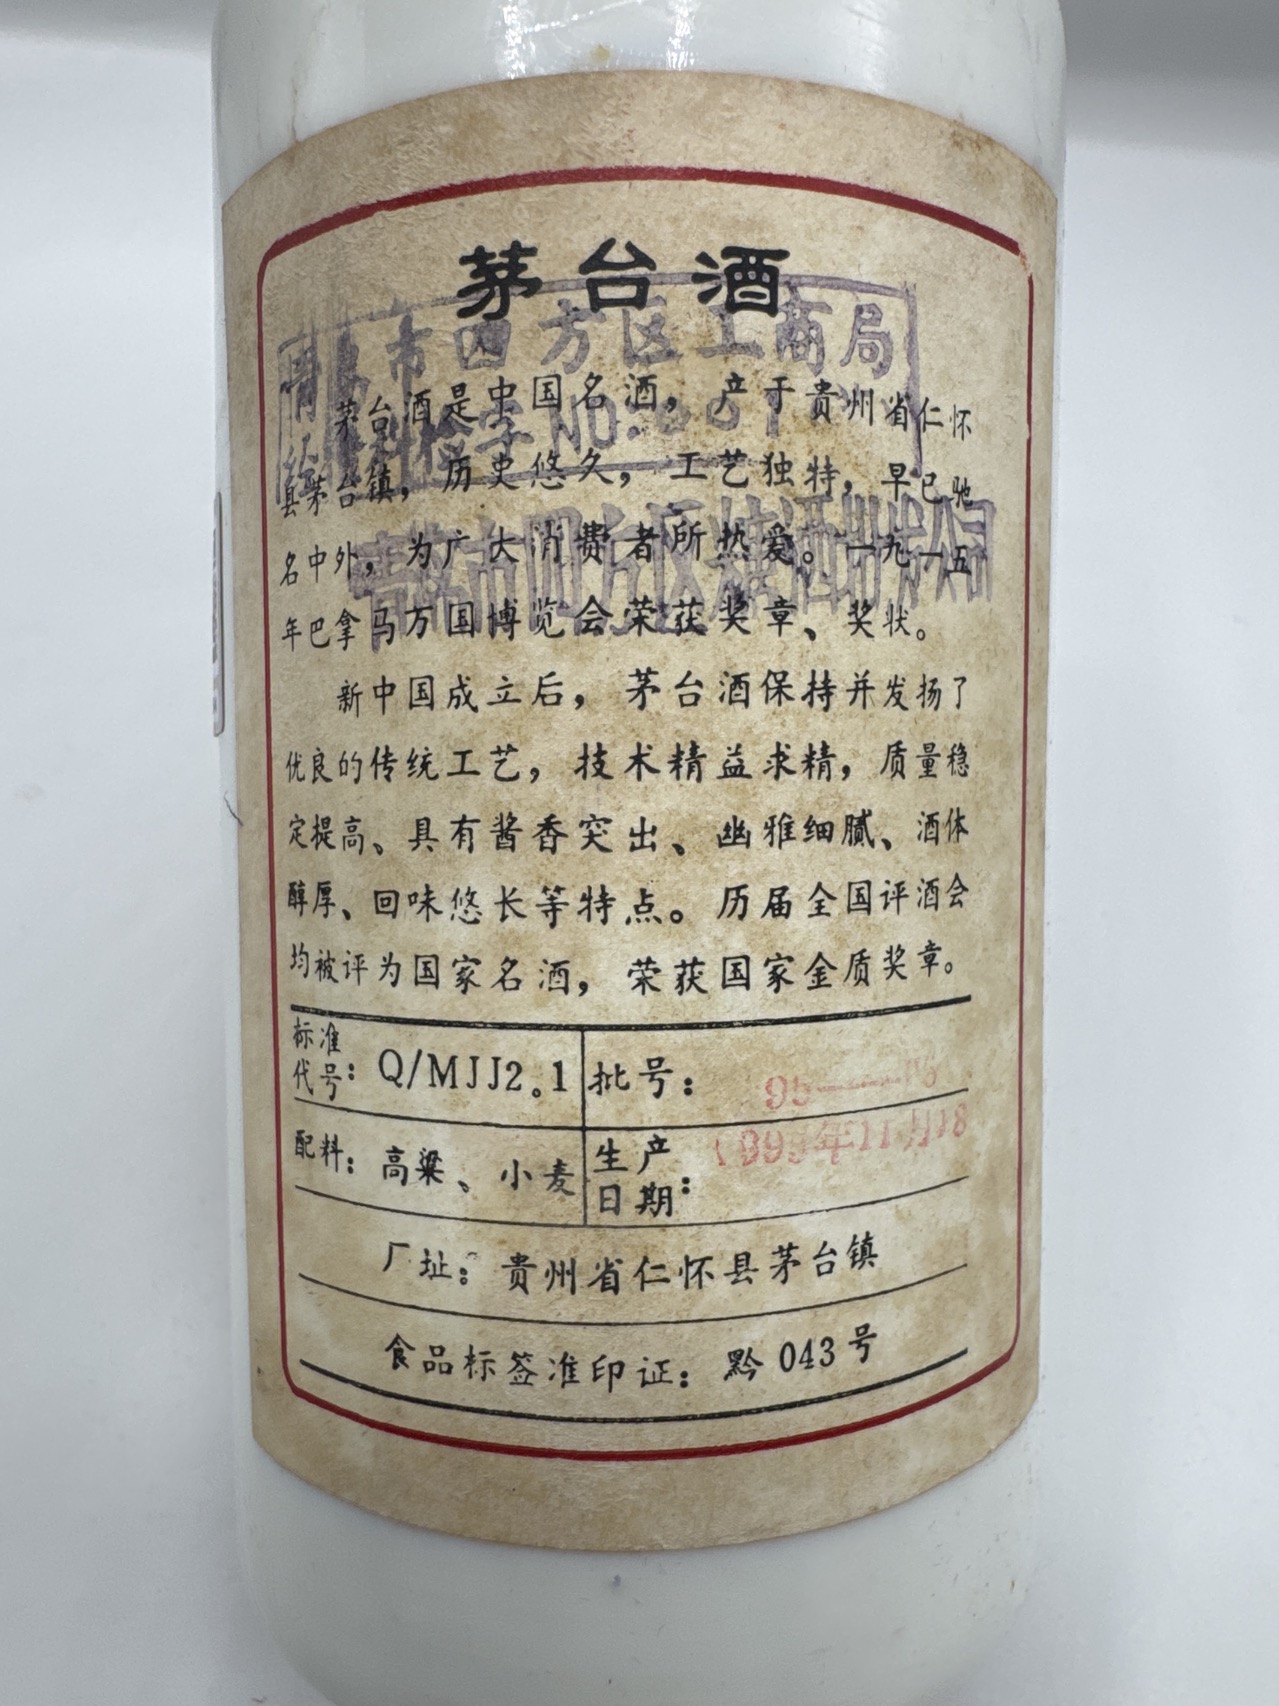 茅台酒
市四方区工商局
茅台酒是中国名酒，产于贵州省仁怀
县茅台镇，历史悠久，工艺独特，早已驰
名中外，为广大消费者所热爱。一九一五
年巴拿马万国博览会荣获奖章、奖状。
新中国成立后，茅台酒保持并发扬了
优良的传统工艺，技术精益求精，质量稳
定提高、具有酱香突出、幽雅细腻、酒体
醇厚、回味悠长等特点。历届全国评酒会
均被评为国家名酒，荣获国家金质奖章。
标准代号：Q/MJJ2.1
批号：
配料：高粱、小麦
生产日期：
厂址：贵州省仁怀县茅台镇
食品标签准印证：黔043号